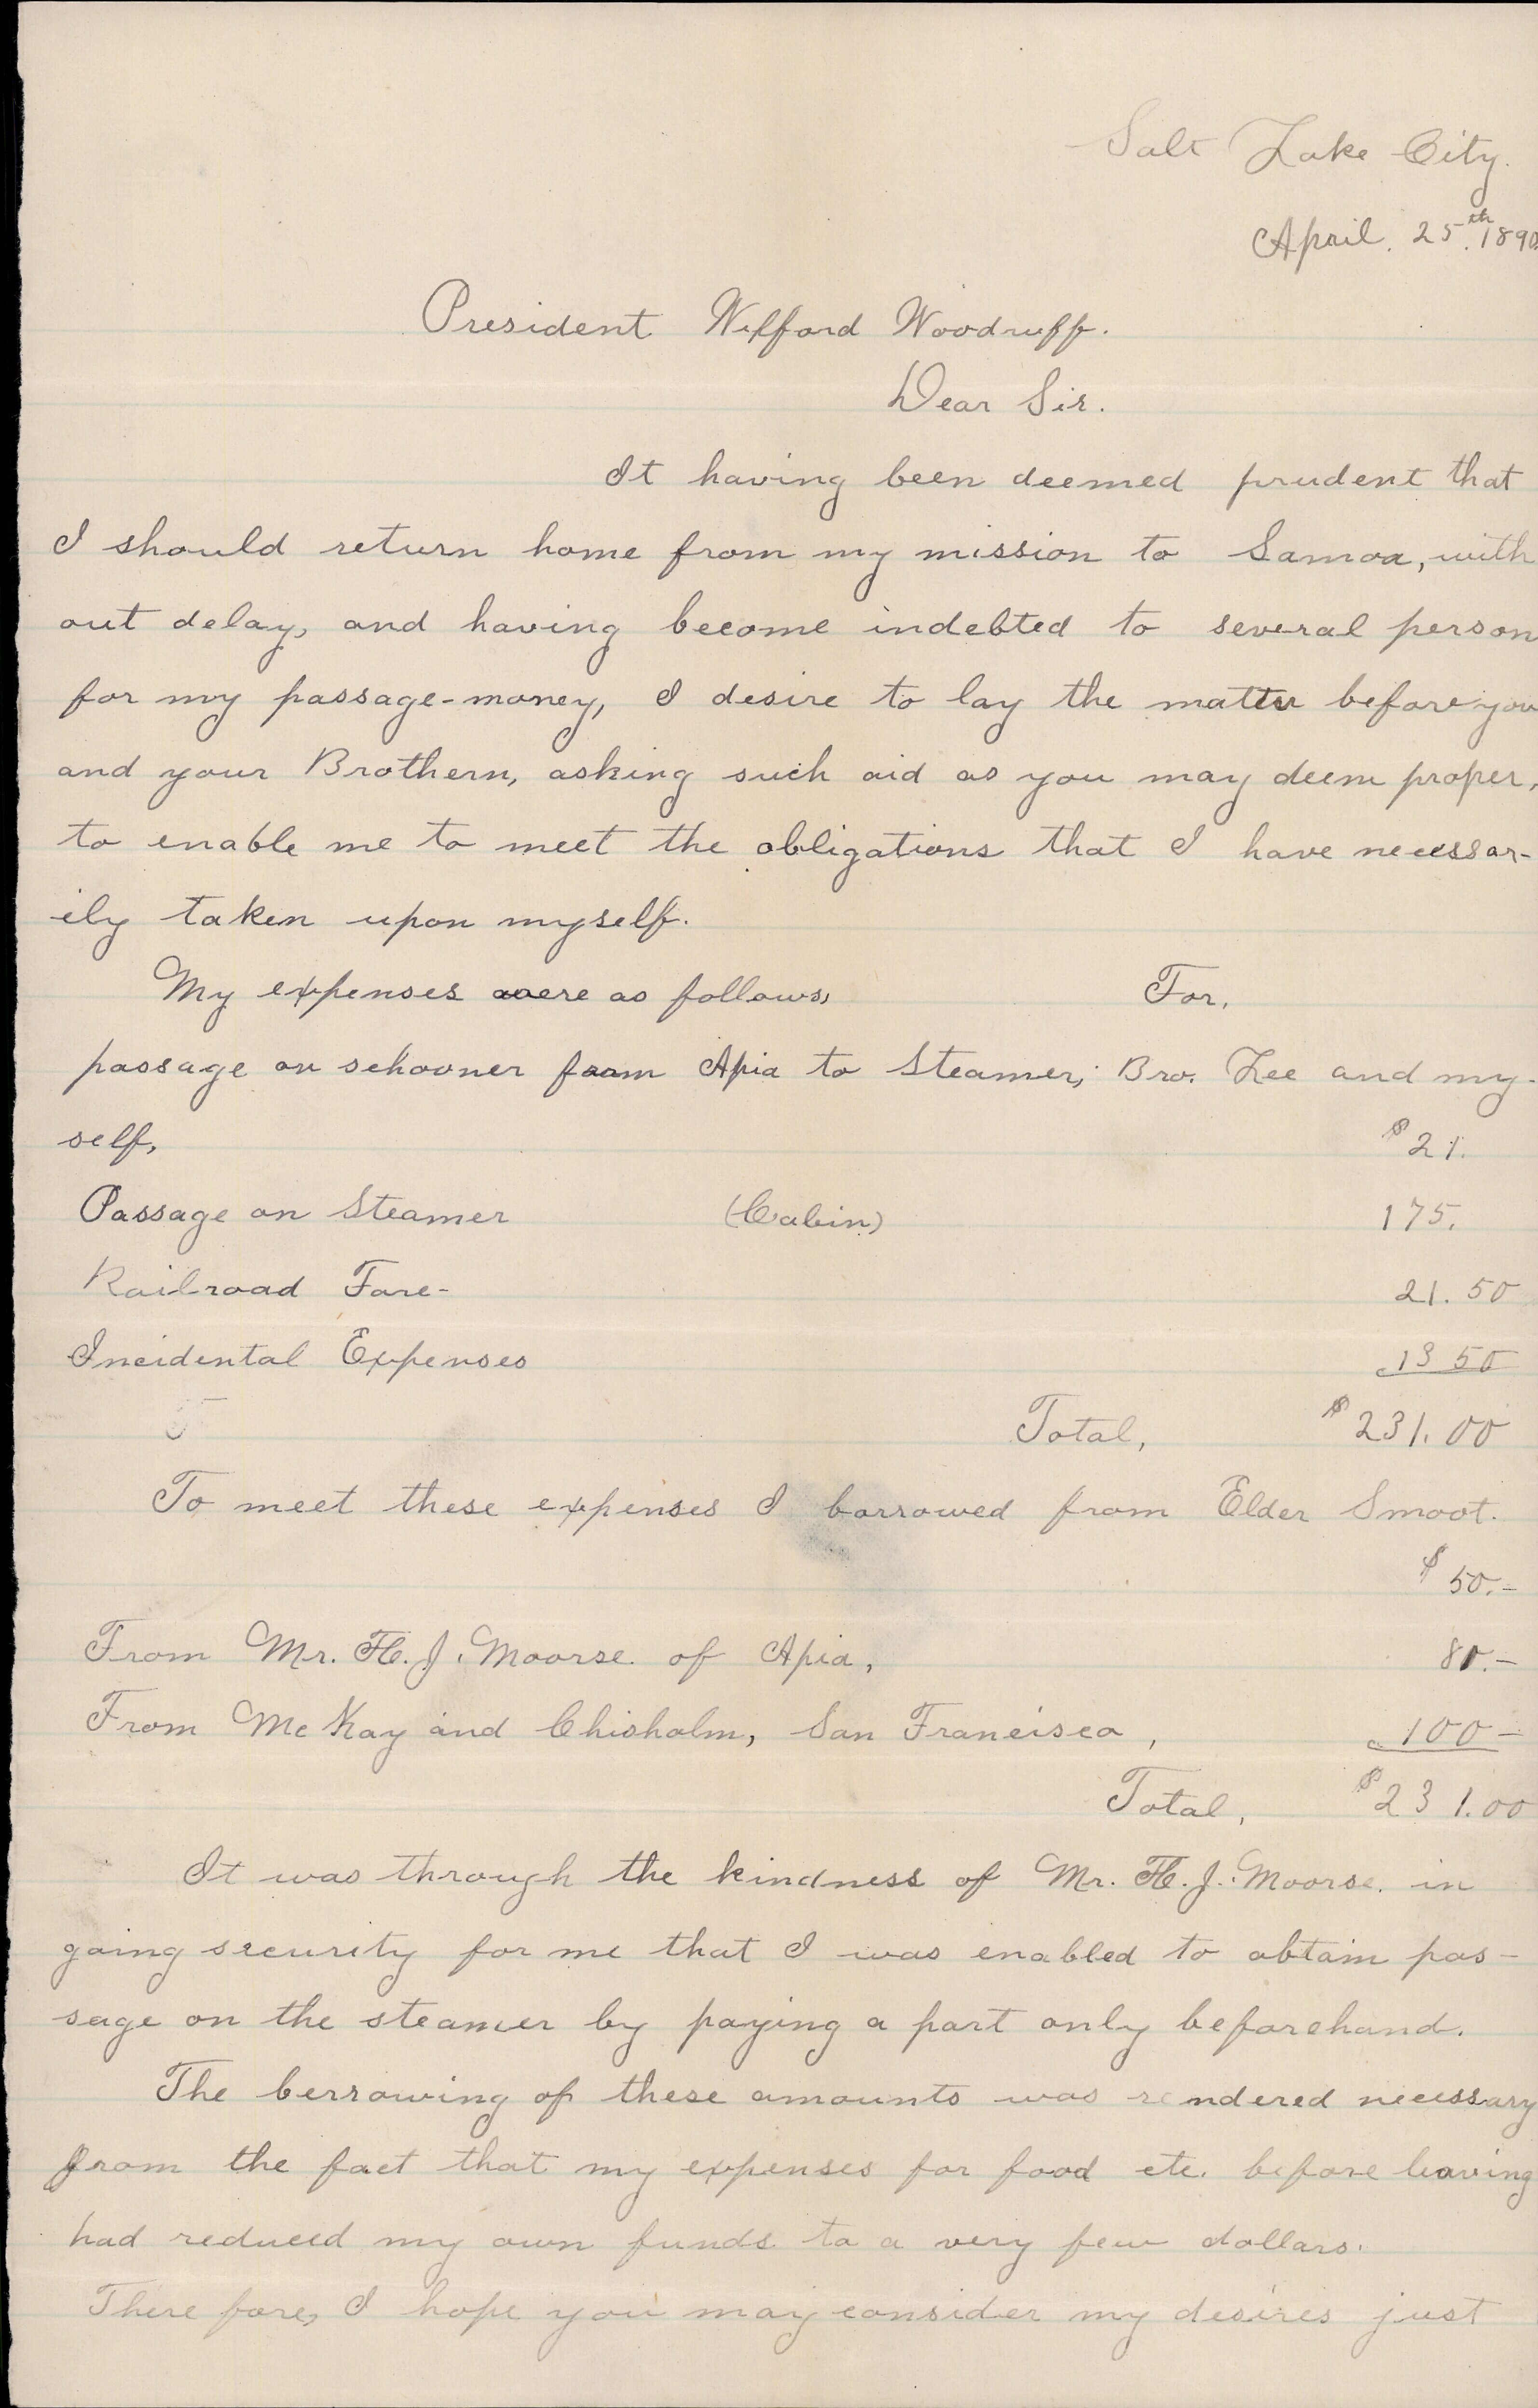 Salt Lake City.
April. 25th. 1890
President Wilford Woodruff.
Dear Sir.
It having been deemed prudent that
I should return home from my mission to Samoa, with
out delay, and having become indebted to several person
for my passage-money, I desire to lay the matter before you
and your Brothern, asking such aid as you may deem proper,
to enable me to meet the obligations that I have necessar-
ily taken upon myself.
My expenses were as follows, For,
passage on schooner from Apia to Steamer; Bro. Lee and my-
self, $21.
Passage on Steamer (Cabin) 175.
Railroad Fare- 21.50
Incidental Expenses 13 50
Total, $231.00
To meet these expenses I borrowed from Elder Smoot.
$50.-
From Mr. H. J. Moorse of Apia, 81.-
From McKay and Chisholm, San Francisco, 100-
Total, $231.00
It was through the kindness of Mr. H. J. Moorse. in
going security for me that I was enabled to obtain pas-
sage on the steamer by paying a part only beforehand.
The berrowing of these amounts was rendered necessary
from the fact that my expenses for food etc. before leaving
had reduced my own funds to a very few dollars.
There fore, I hope you may consider my desires just